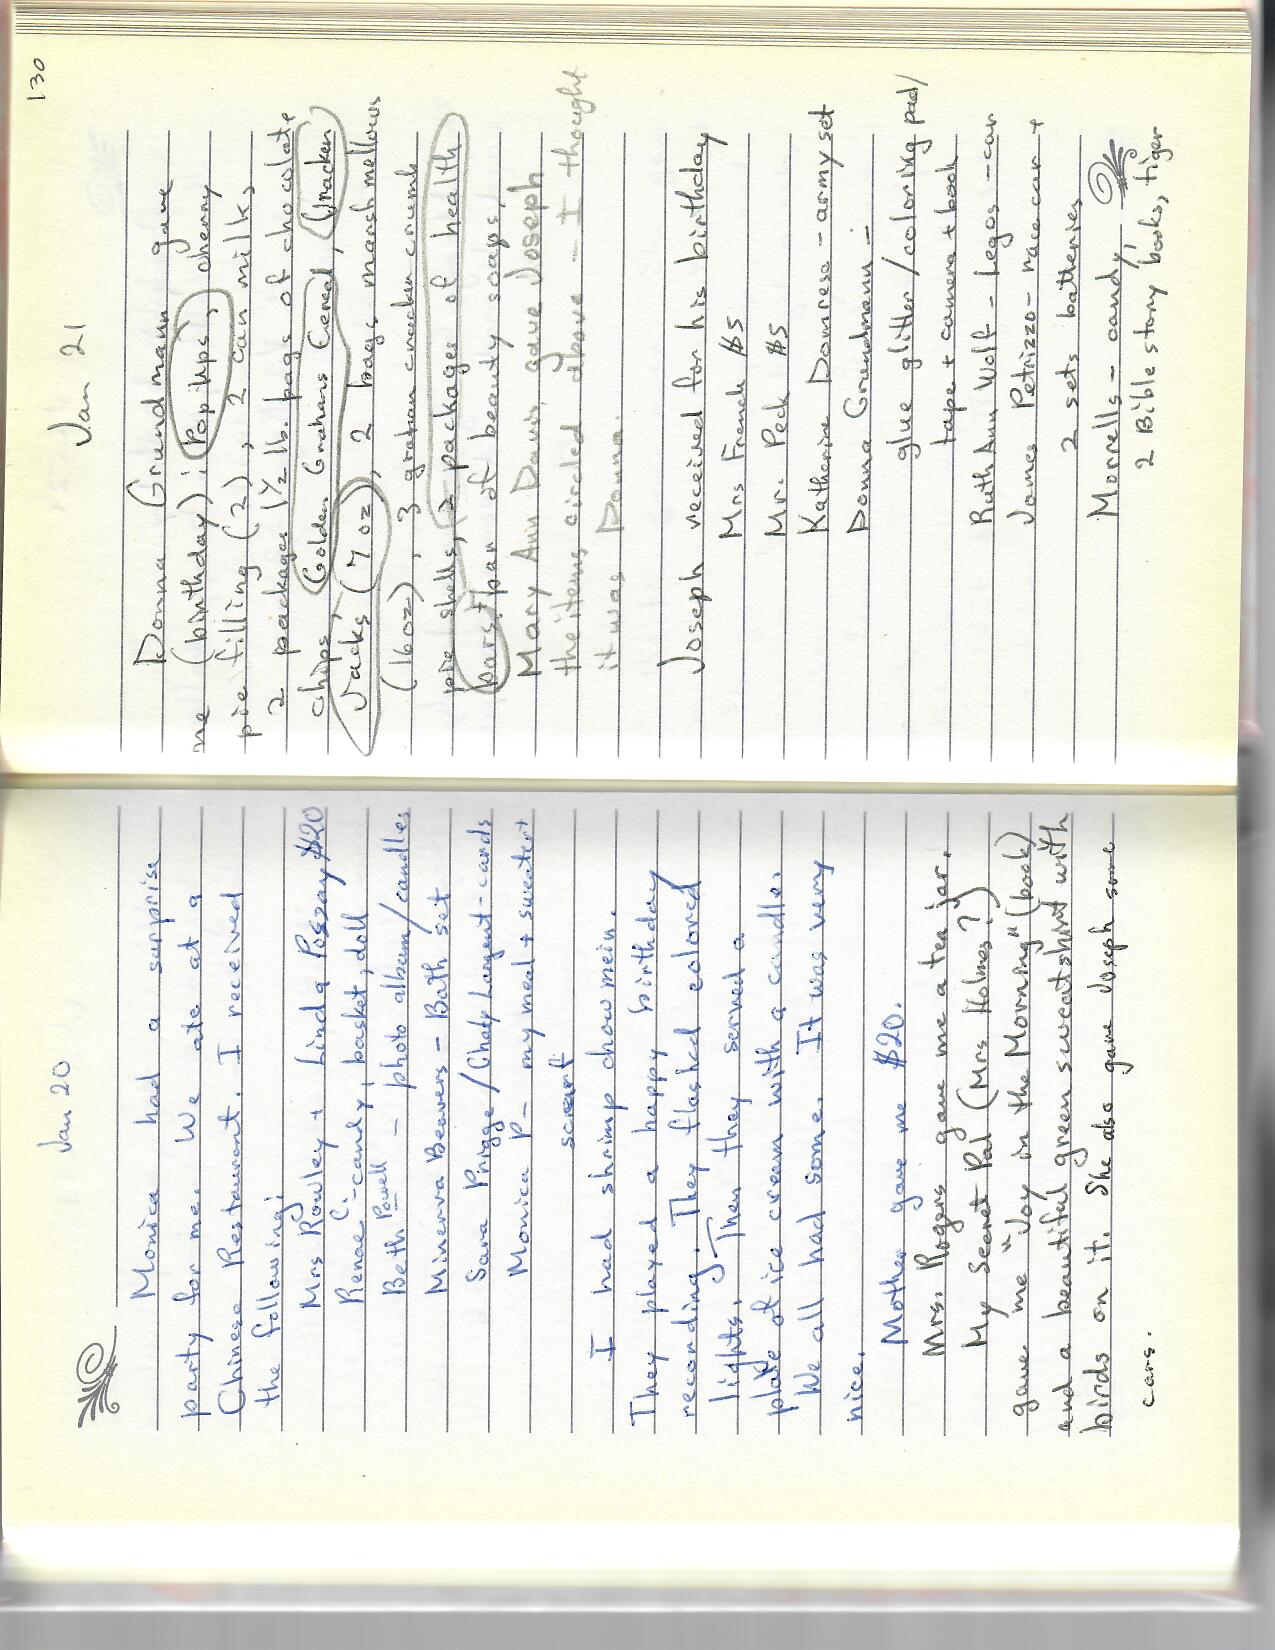 Jan 20
Monica had a surprise
party for me. We ate at a
Chines Restaurant. I received
the following:
Mrs Rowley + Linda Poszay $20
Renae C - candy, basket, doll
Beth Powell - photo album/candles
Minerva Beavers - Bath set
Sara Prigge / Largent - cards
Monica P - my meal + sweater +
scarf
I had shrimp chow mein.
They played a happy birthday
recording. They flashed colored
lights. Then they served a
plate of ice cream with a candle.
We all had some. It was very
nice.
Mother gave me $20.
Mrs. Rogers gave me a tea jar.
My Secret Pal (Mrs Holmes?)
gave me "Joy in the Morning" (book)
and a beautiful green sweatshirt with
birds on it. She also gave Joseph some
cars.
130
Jan 21
Donna Grundmann gave
me (birthday): Pop Ups, cherry
pie filling (2), 2 can milk,
2 packages 1 1/2 lb. bags of chocolate
chips, Golden Grahams Cereal, Cracker
Jacks (7 oz), 2 bags marshmellows
(16 oz), 3 graham cracker crumb
pie shells, 2 packages of health
bars + bar of beauty soaps.
Mary Ann Davis gave Joseph
the items circled above - I thought
it was Donna.
Joseph received for his birthday
Mrs French $5
Mr. Peck $5
Katherine Domrese - army set
Donna Grundmann =
glue glitter/coloring pad/
tape + camera + book
Ruth Ann Wolf - Legos - car
James Petrizzo - race car +
2 sets batteries
Morrells - candy,
2 Bible story books, tiger